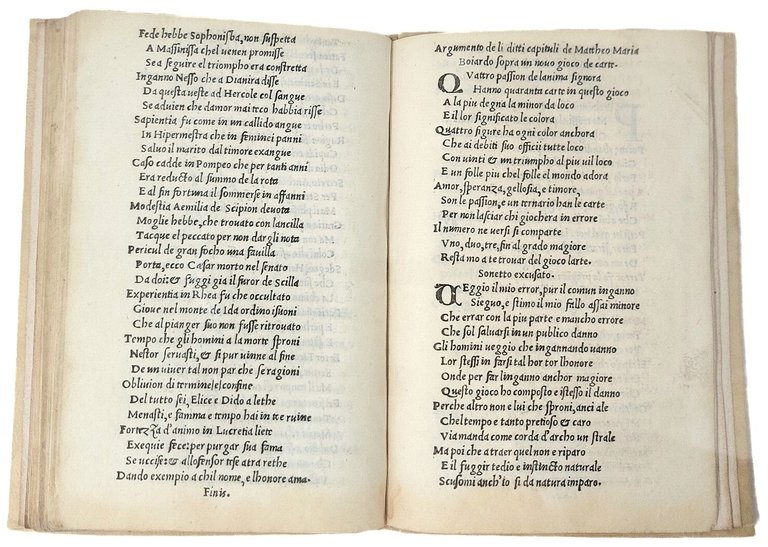 Fede hebbe Sophonisba, non suspetta
A Massinissa chel uenen promisse
Se a seguire el triompho era constretta
Inganno Nesso che a Dianira disse
Da questa ueste ad Hercole col sangue
Se aduien che damor mai teco habbia risse
Sapientia fu come in un callido angue
In Hipermestra che in feminei panni
Saluo il marito dal timore exangue
Caso cadde in Pompeo che per tanti anni
Era reducto al summo de la rota
E al fin fortuna il sommerse in affanni
Modestia Aemilia de Scipion deuota
Moglie hebbe, che trouato con lancilla
Tacque el peccato per non dargli nota
Pericul de gran focho una fauilla
Porta, ecco Cæsar morto nel senato
Da doi: & fuggi gia il furor de Scilla
Experientia in Rhea fu che occultato
Gioue nel monte de Ida ordino isuoni
Che al pianger suo non fusse ritrouato
Tempo che gli homini a la morte sproni
Nestor seruasti, & si pur uinne al fine
De un uiuer tal non par che se ragioni
Obliuion di termine|e|confine
Del tutto sei, Elice e Dido a lethe
Menasti, e famma e tempo hai in tre ruine
Fortezza d'animo in Lucretia liete
Exequie fece: per purgar sua fama
Se uccise: & allofensor tese atra rethe
Dando exempio a chil nome, e lhonore ama.
Finis.
Argumento de li ditti capituli de Mattheo Maria
Boiardo sopra un nouo gioco de carte.
QVattro passion de lanima signora
Hanno quaranta carte in questo gioco
A la piu degna la minor da loco
E il lor significato le colora
Quattro figure ha ogni color anchora
Che ai debiti suo officii tutte loco
Con uinti & un triumpho al piu uil loco
E un folle piu chel folle el mondo adora
Amor, speranza, gellosia, e timore,
Son le passion, e un ternario han le carte
Per non lasciar chi giochera in errore
Il numero ne uersi si comparte
Vno, duo, tre, fin al grado magiore
Resta mo a te trouar del gioco larte.
Sonetto excusato.
VEggio il mio error, pur il comun inganno
Sieguo, e stimo il mio fallo assai minore
Che errar con la piu parte e mancho errore
Che sol saluarsi in un publico danno
Gli homini ueggio che ingannando uanno
Lor stessi in farsi tal hor tor lhonore
Onde per far linganno anchor magiore
Questo gioco ho composto e istesso il danno
Perche altro non e lui che sproni, anci ale
Chel tempo e tanto pretioso & caro
Via manda come corda d'archo un strale
Ma poi che a traer quel non e riparo
E il fuggir tedio e instincto naturale
Scusomi anch'io si da natura imparo.